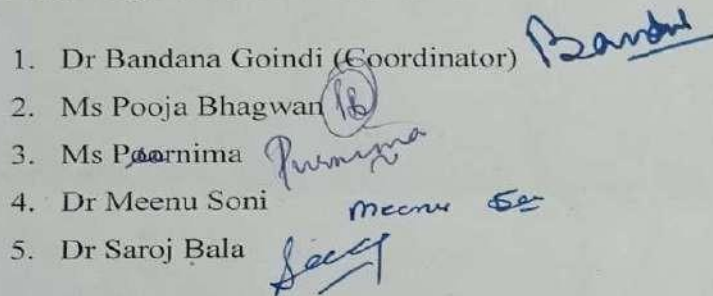 1. Dr Bandana Goindi (Coordinator) Bandna
2. Ms Pooja Bhagwan PB
3. Ms Poornima Purnima
4. Dr Meenu Soni Meenu
5. Dr Saroj Bala